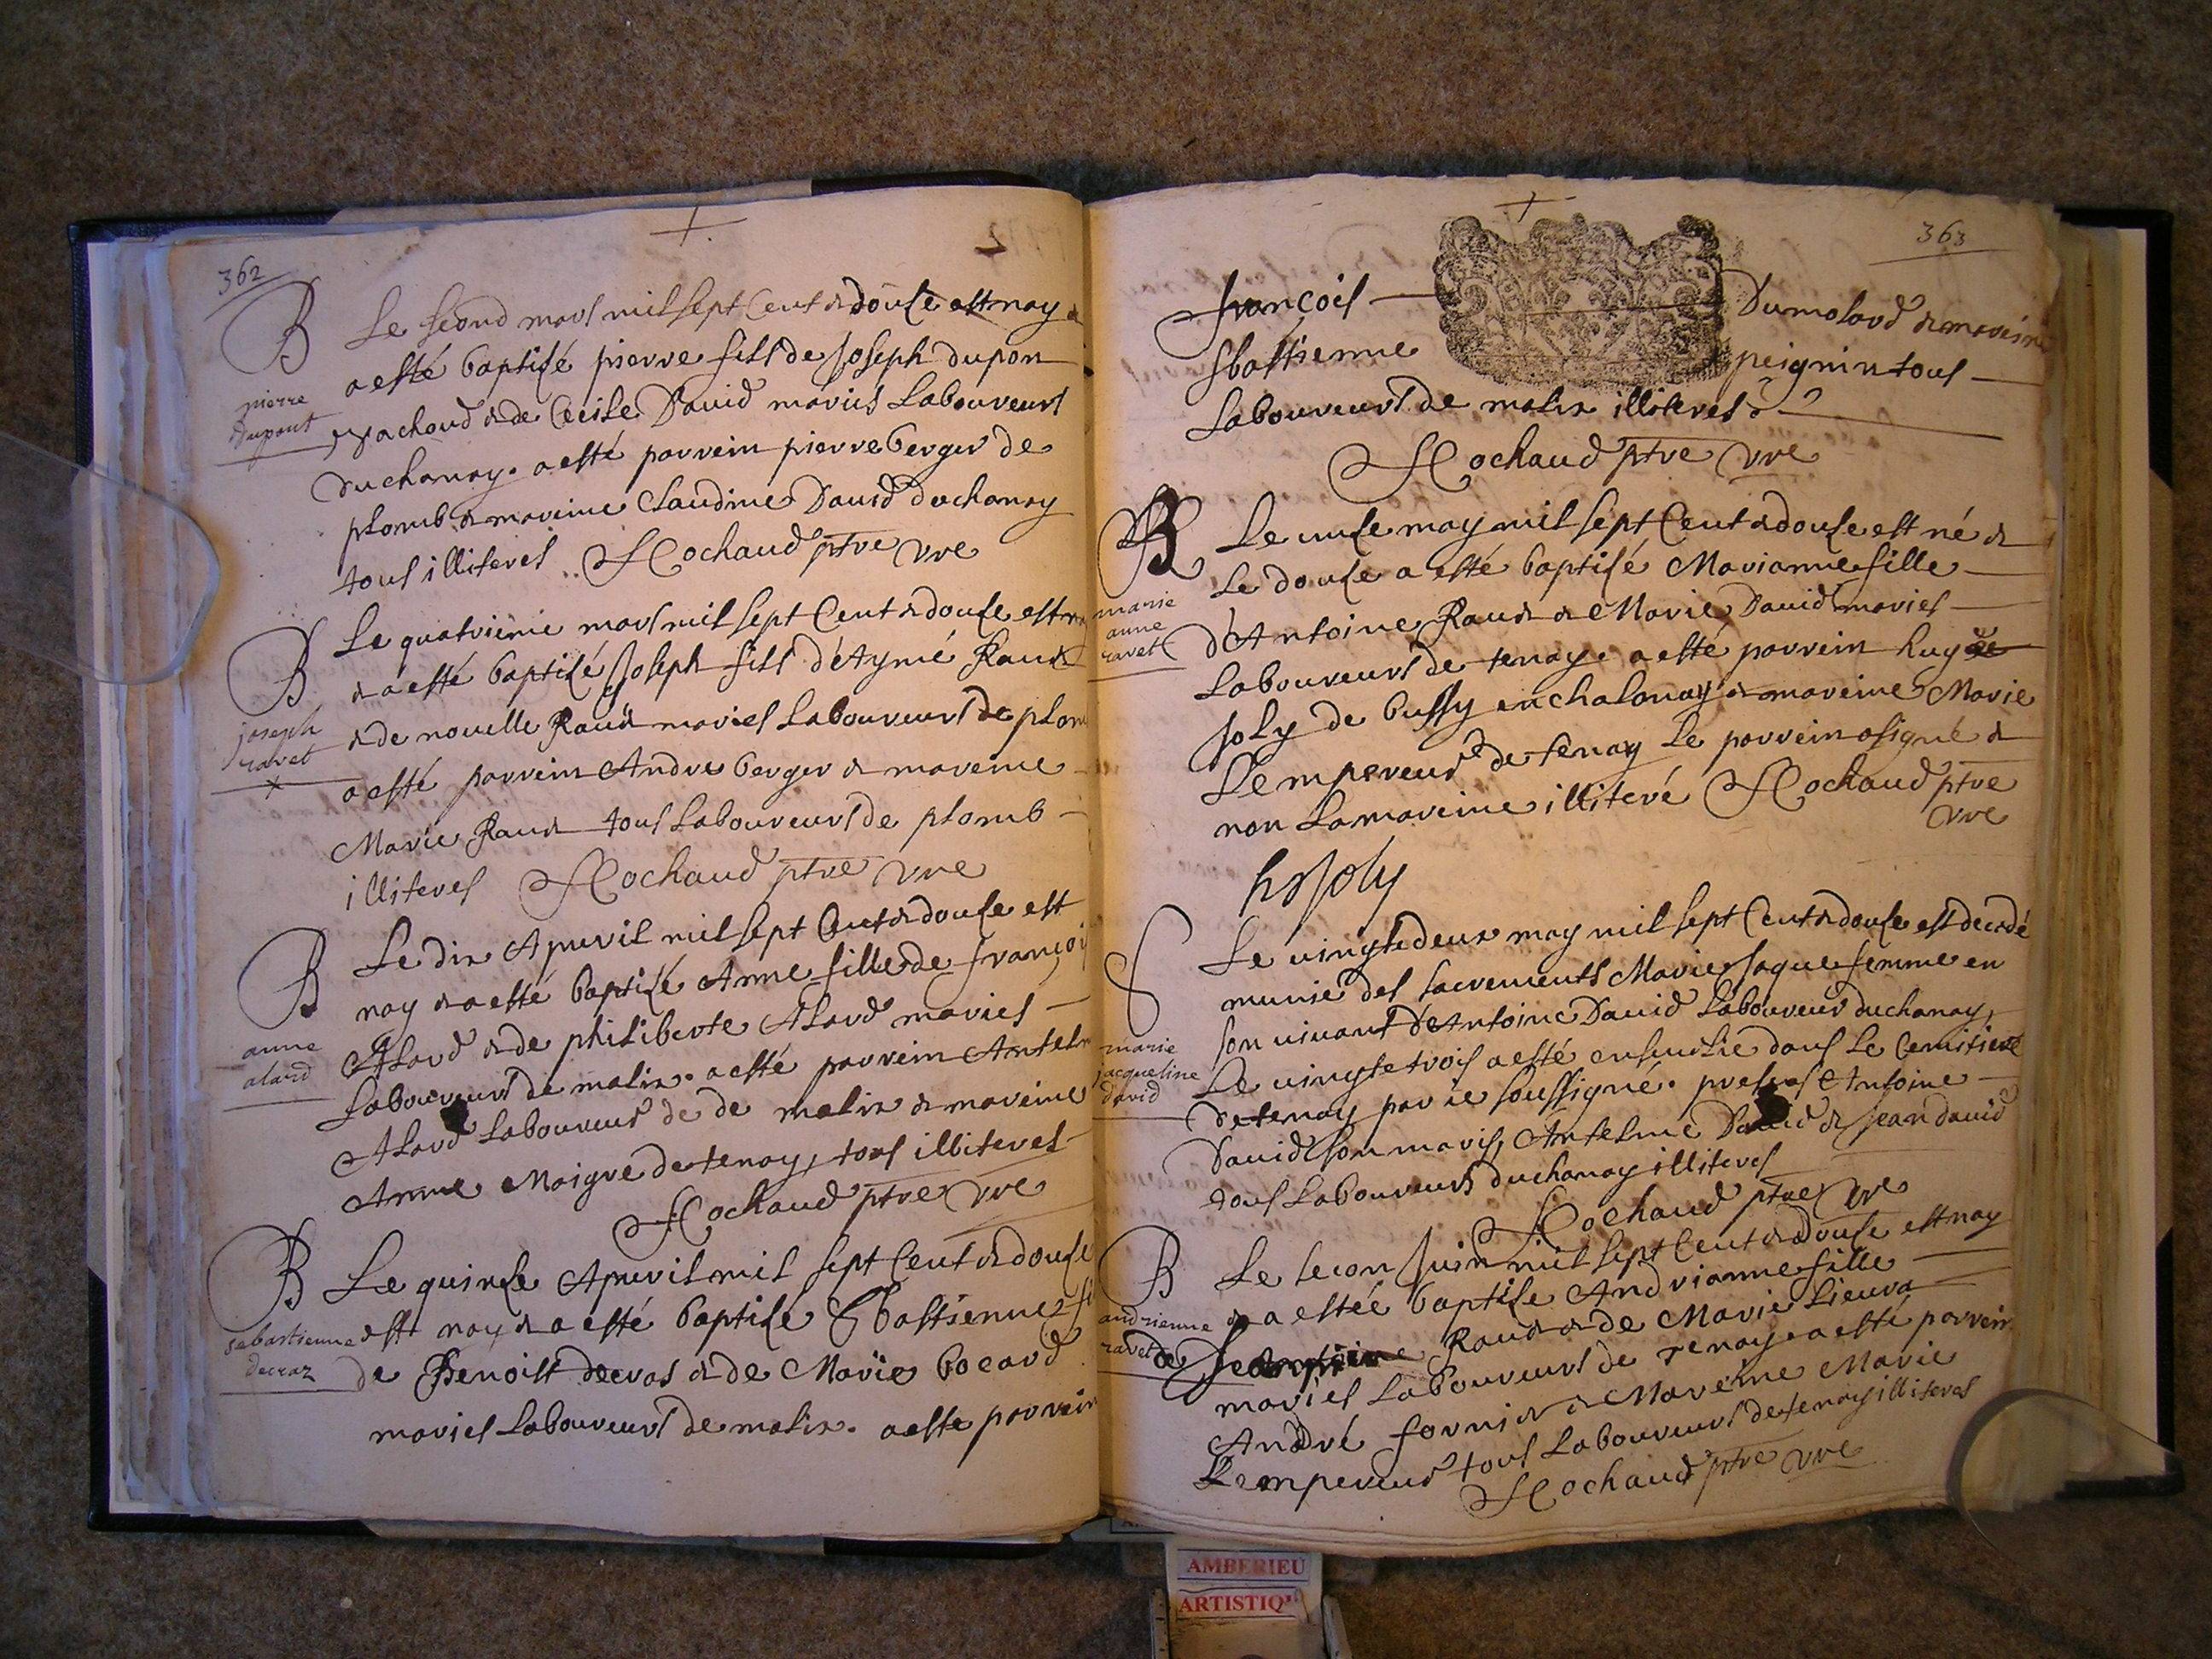 362
B
Le second mars mil sept Cent & douse est nay &
a esté baptisé pierre fils de Joseph dupon
pierre
dupont
pachoud & de Cecile David maries Laboureurs
du chanay. a esté parrein pierre berger de
plomb & mareine Claudine David du chanay
tous illiteres Hochaud ptre vre
B
Le quatrieme mars mil sept Cent & douse est
& a esté baptisé Joseph fils d'Aymé Raue
joseph
ravet
& de nouelle Raue maries Laboureurs de plom
a esté parrein Andre berger & mareine
Marie Raue tous Laboureurs de plomb
illiteres Hochaud ptre vre
B
Le dix Apuvril mil sept Cent & douse est
nay & a esté baptisé Anne fille de françoi
anne
alard
Alard & de philiberte Alard maries
Laboureurs de malix. a esté parrein Antelm
Alard Laboureur de de malix & mareine
Anne Maigre de tenay, tous illiteres
Hochaud ptre vre
B
Le quinse Apuvril mil sept Cent & douse
est nay & a esté baptisé Sbastienne fi
sebastienne
decraz
de Benoist decras & de Marie bocard
maries Laboureurs de malix. a esté parrein
363
françois Dumolard & mareine
Sbastienne peignin tous
Laboureurs de malix illiteres
Hochaud ptre vre
B
Le unse may mil sept Cent & douse est né &
Le douse a esté baptisé Marianne fille
marie
anne
ravet
d'Antoine Raue & Marie David maries
Laboureurs de tenay. a esté parrein hugue
Joly de bussy en chalonay & mareine Marie
Lempereur de tenay Le parrein a signé &
non La mareine illiteré Hochaud ptre
vre
hs Joly
S
Le vingtedeux may mil sept Cent & douse est decedé
munie des sacrements Marie Jaque femme en
son vivant d'Antoine David Laboureur du chanay,
marie
jacqueline
david
Le vingtetrois a esté ensevelie dans Le Cemitiere
de tenay par ie soussigné. presens Antoine
David son maris, Antelme David & Jean david
tous Laboureurs du chanay illiteres
Hochaud ptre vre
B
Le secon Juin mil sept Cent & douse est nay
& a estée baptise Andrianne fille
andrienne
ravet
de Raue & de Marie Lieura
maries Laboureurs de tenay. a esté parrein
André fornier & Mareine Marie
Lempereur tous Laboureurs de tenay illiteres
Hochaud ptre vre
AMBERIEU
ARTISTIQ